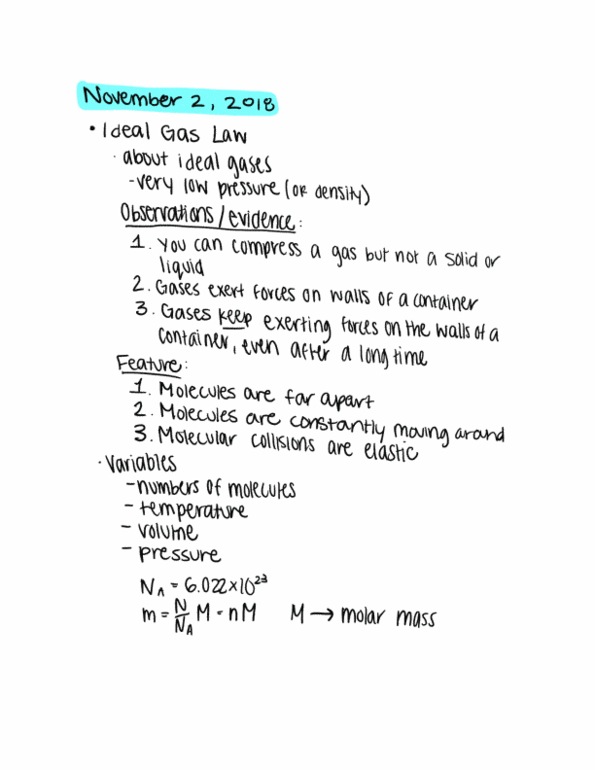 November 2, 2018
• Ideal Gas Law
· about ideal gases
- very low pressure (or density)
Observations/evidence:
1. You can compress a gas but not a solid or
liquid
2. Gases exert forces on walls of a container
3. Gases keep exerting forces on the walls of a
container, even after a long time
Feature:
1. Molecules are far apart
2. Molecules are constantly moving around
3. Molecular collisions are elastic
· Variables
- numbers of molecules
- temperature
- volume
- pressure
N_A = 6.022×10²³
m = N/N_A M = nM M → molar mass